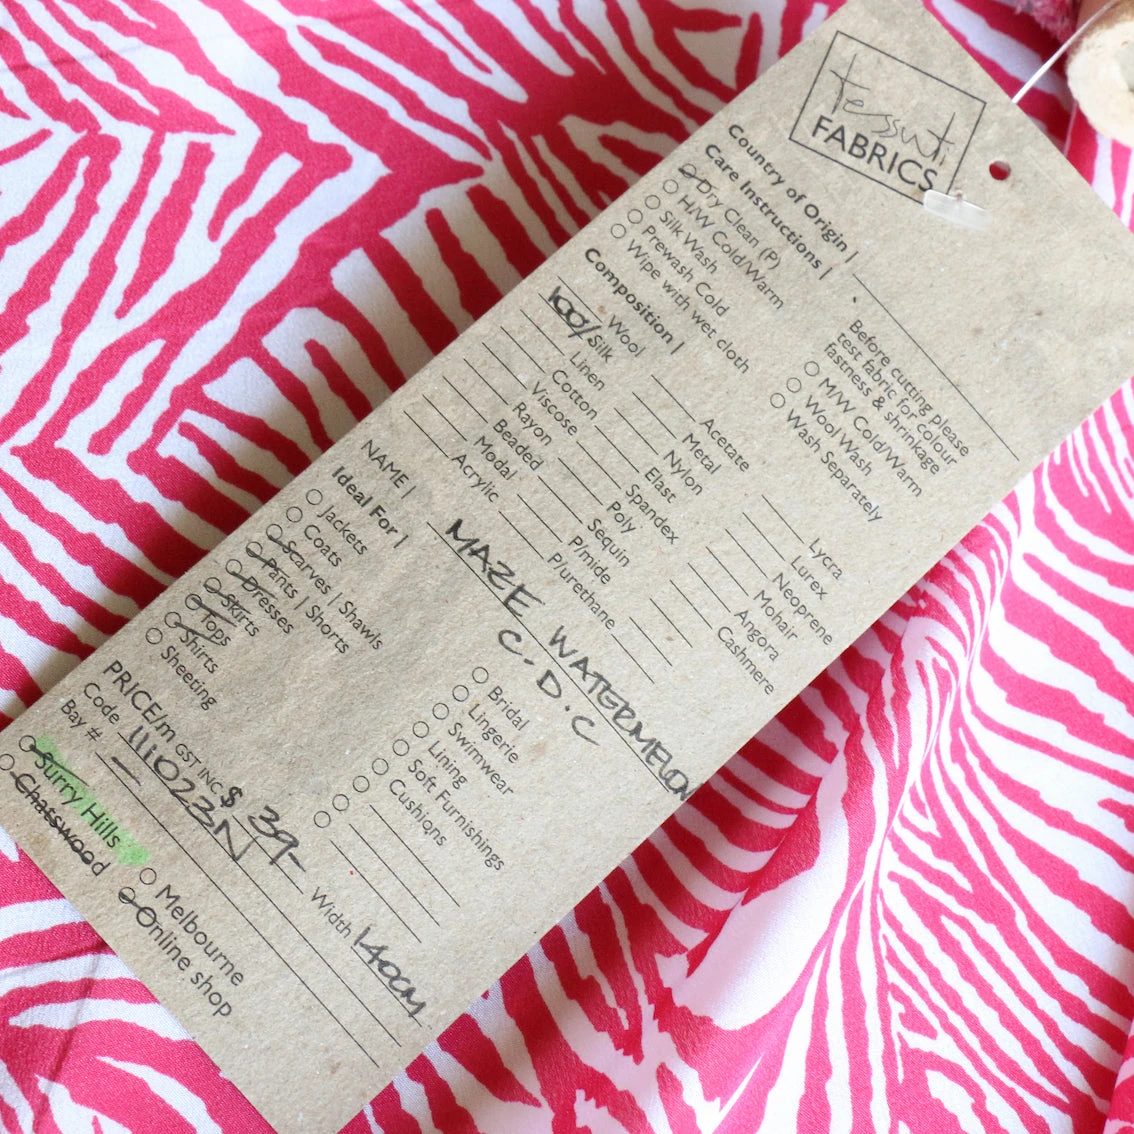 Tessuti
FABRICS
Country of Origin |
Care Instructions |
Dry Clean (P)
H/W Cold/Warm
Silk Wash
Prewash Cold
Wipe with wet cloth
Before cutting please
test fabric for colour
fastness & shrinkage
M/W Cold/Warm
Wool Wash
Wash Separately
Composition |
Wool
100% Silk
Linen
Cotton
Viscose
Rayon
Beaded
Modal
Acrylic
Acetate
Metal
Nylon
Elast
Spandex
Poly
Sequin
P/mide
P/urethane
Lycra
Lurex
Neoprene
Mohair
Angora
Cashmere
NAME | MAZE WATERMELON
C.D.C
Ideal For |
Jackets
Coats
Scarves | Shawls
Pants | Shorts
Dresses
Skirts
Tops
Shirts
Sheeting
Bridal
Lingerie
Swimwear
Lining
Soft Furnishings
Cushions
PRICE/m GST INC $ 39- Width 140cm
Code 111023N
Bay # —
Surry Hills
Chatswood
Melbourne
Online shop